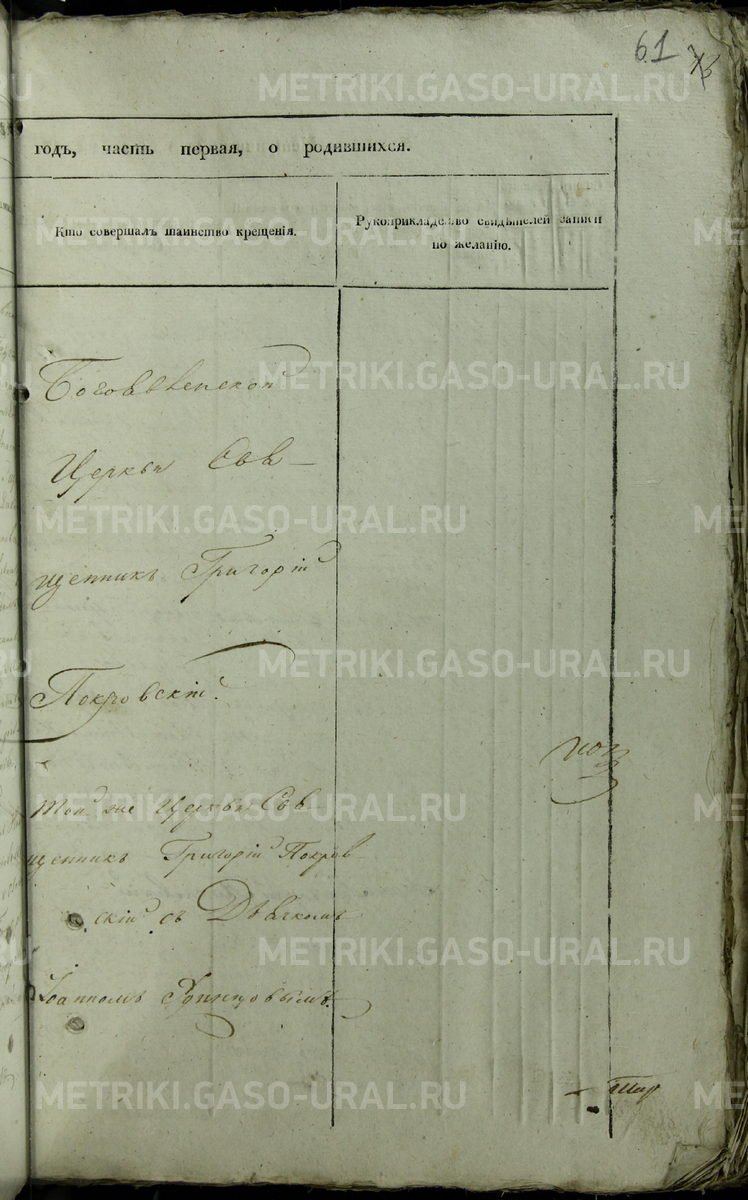 61
METRIKI.GASO-URAL.RU
годъ, часть первая, о родившихся.
Кто совершалъ таинство крещенія.
Рукоприкладство свидѣтелей записи
по желанію.
Богоявленской
Церкви Свя-
щенникъ Григорій
Покровскій.
Той же Церкви Свя-
щенникъ Григорій Покров-
скій съ Дьячкомъ
Іоанномъ